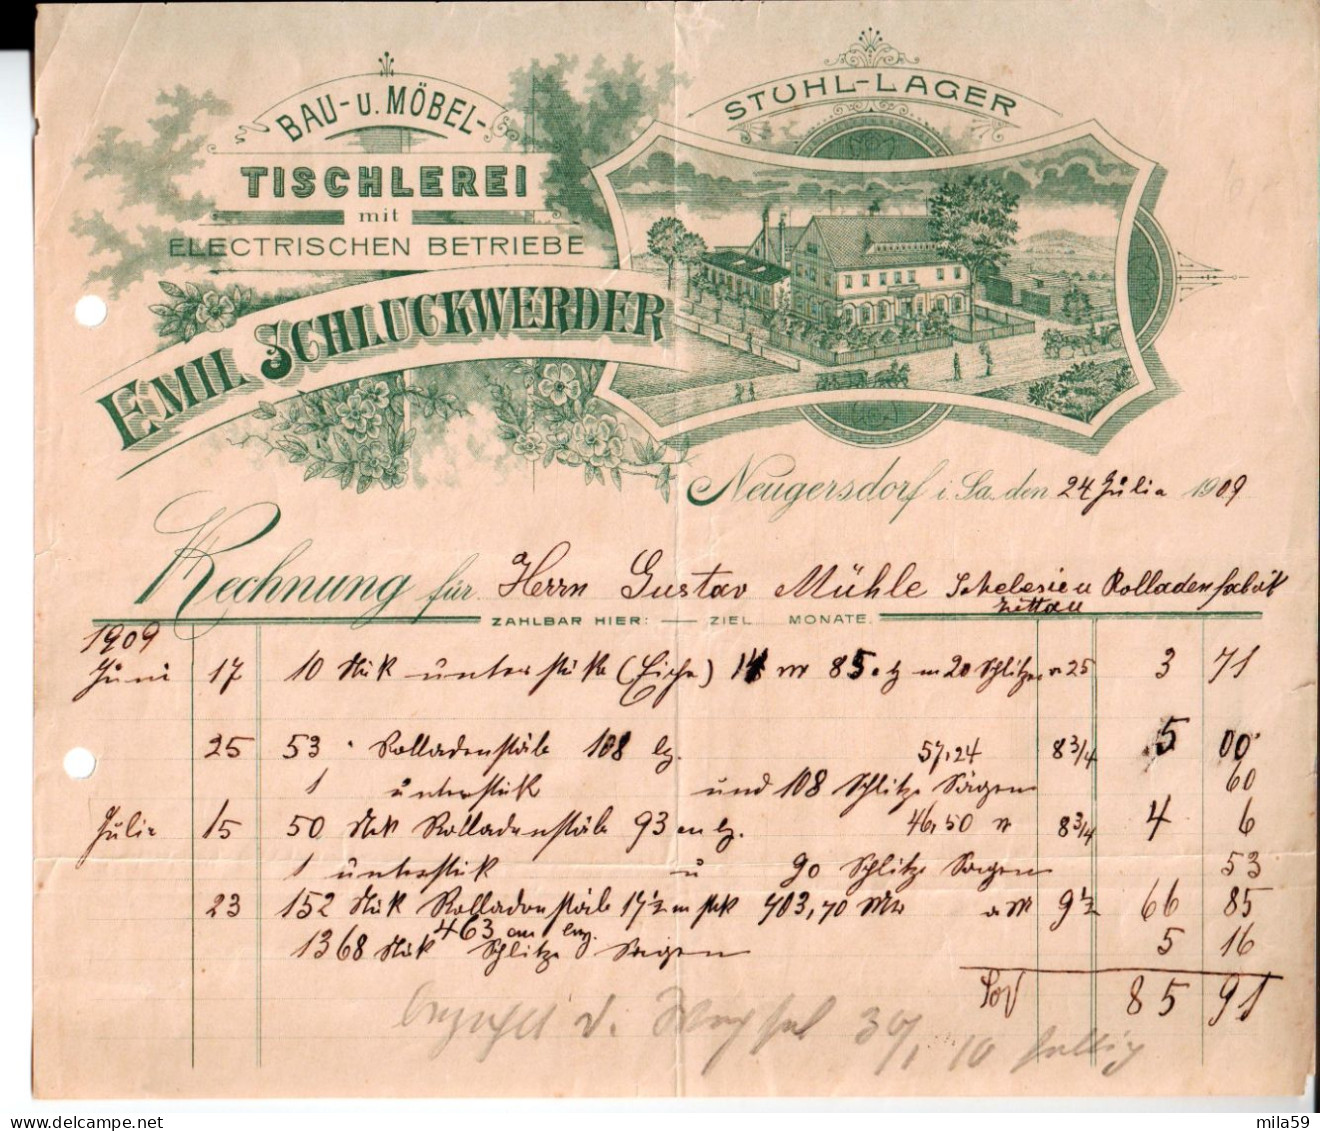 BAU- U. MÖBEL-
TISCHLEREI
mit
ELECTRISCHEN BETRIEBE
EMIL SCHLUCKWERDER
STUHL-LAGER
Neugersdorf i. Sa. den 24 Julia 1909
Rechnung für Herrn Gustav Mühle Rolladenfabrik
Zittau
ZAHLBAR HIER: ZIEL MONATE.
1909
Juni 17 10 Stük unterstükke (Eiche) 14 m 85 20 Schlitze 25 3 71
25 53 Rolladenstäbe 108 lg. 57,24 8 3/4 5 00
1 unterstük und 108 Schlitze Sägen 60
Julie 15 50 Stük Rolladenstäbe 93 cm lg. 46,50 m 8 3/4 4 6
1 unterstük u 90 Schlitze Sägen 53
23 152 Stük Rolladenstäbe 403,70 Mtr a M 9 1/2 66 85
463 cm lng.
1368 Stük Schlitze Sägen 5 16
85 91
bezahlt d. Wechsel 30/1 10 fällig
mila59